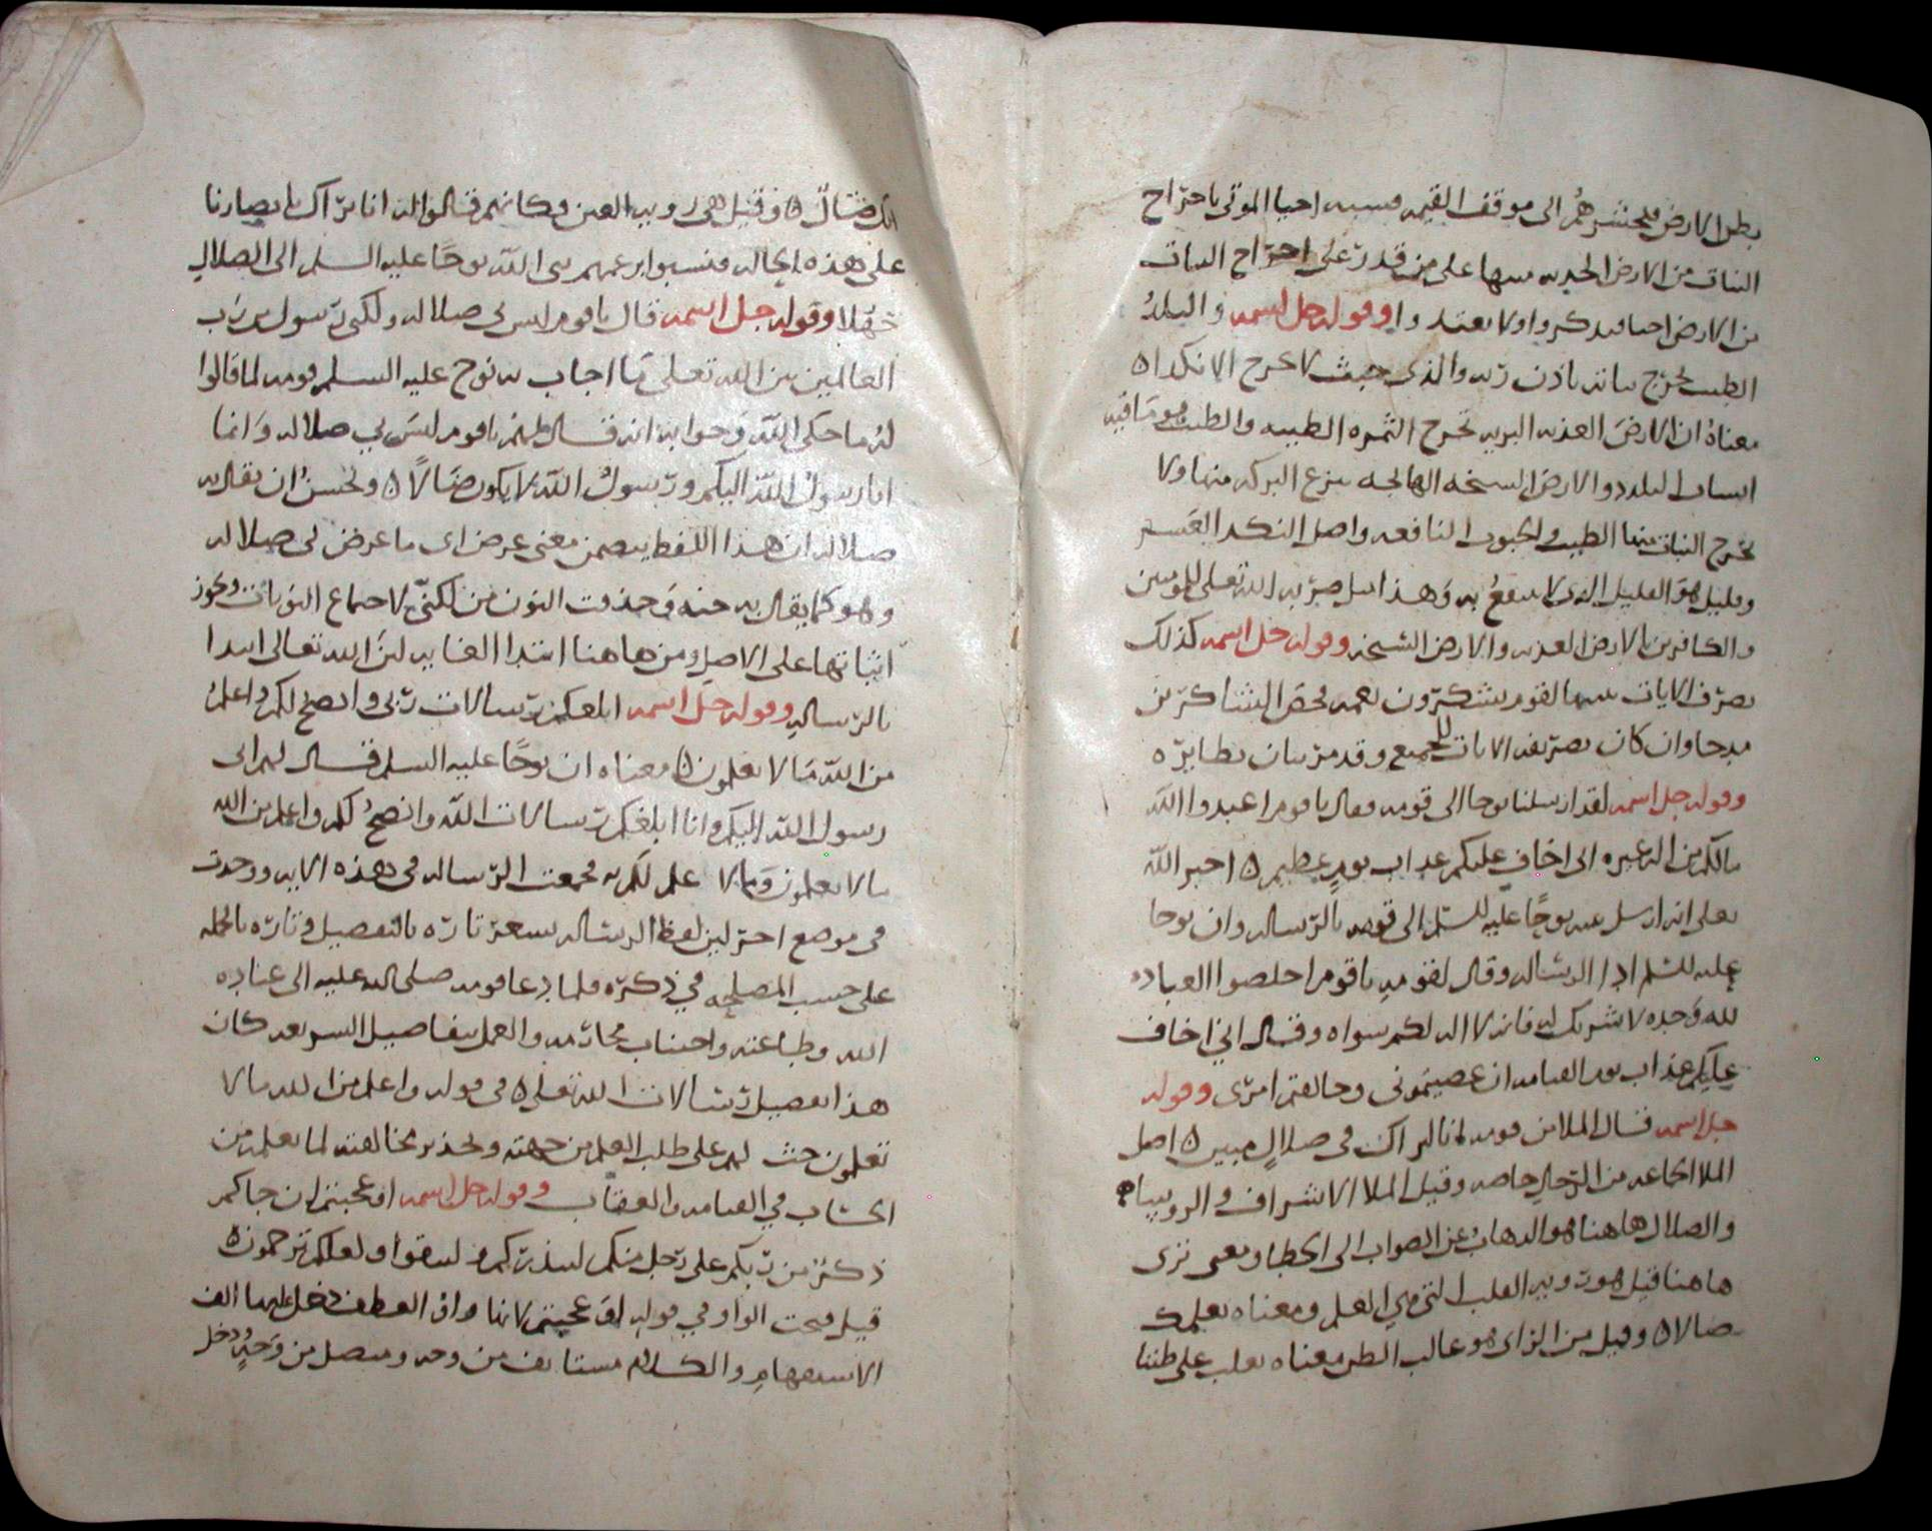 بطن الارض فيحشرهم الى موقف القيمه فسبه احيا الموتى باخراج
النبات من الارض الجدبه منبها على من قدر على اخراج النبات
من الارض احيا فيذكروا ولا يعتدوا وقوله جل اسمه والبلد
الطيب يخرج نباته باذن ربه والذي خبث لا يخرج الا نكدا ه
معناه ان الارض العذبه البريه تخرج الثمره الطيبه والطيب هو ما فيه
البلد والارض السخه المالحه بنزع البركه منها ولا
تخرج النبات منها الطيب والحبوب النافعه واصل النكد العسر
وقليل هو القليل الذى لا ينفع به وهذا مثل ضربه الله تعلى للمومنين
والكافرين بالارض العذبه والارض السخه وقوله جل اسمه كذلك
نصرف الايات لقوم يشكرون نعمه فخص الشاكرين
مدحا وان كان تصريف الايات للجميع وقد مر بيان نظايره
وقوله جل اسمه لقد ارسلنا نوحا الى قومه فقال ياقوم اعبدوا الله
مالكم من اله غيره انى اخاف عليكم عذاب يوم عظيم ه اخبر الله
تعلى انه ارسل عبده نوحا عليه السلم الى قومه بالرساله وان نوحا
عليه السلم ادا الرساله وقال لقومه ياقوم اخلصوا العباده
لله وحده لا شريك له فانه لا اله لكم سواه وقال اني اخاف
عليكم عذاب يوم القيامه ان عصيتمونى وخالفتم امرى وقوله
جل اسمه قال الملا من قومه انا لنراك فى ضلال مبين ه اصل
الملا الجماعه من الرجال خاصه وقيل الملا الاشراف والروسا
والضلال هاهنا هو الذهاب عن الصواب الى الخطا ومعنى نرى
هاهنا قيل هو رويه القلب التي هي العلم ومعناه نعلمك
ضالا ه وقيل من الراى هو غالب الظن معناه يغلب على ظننا
انك ضال ه وقيل هى رويه العين فكانهم قالوا له انا نراك بابصارنا
على هذه الحاله فنسبوا بزعمهم نبى الله نوحا عليه السلم الى الضلال
جهلا وقوله جل اسمه قال ياقوم ليس بى ضلاله ولكنى رسول من رب
العالمين بين الله تعلى ما اجاب به نوح عليه السلم قومه لما قالوا
له ما حكى الله وجوابه انه قال لهم ياقوم ليس بي ضلاله وانما
انا رسول الله اليكم ورسول الله لا يكون ضالا ه ويحسن ان يقال به
ضلاله ان هذا اللفظ يتضمن معنى عرض اى ما عرض لى ضلاله
وهو كما يقال به جنه وحذفت النون من لكنى لاجتماع النونات ويجوز
اثباتها على الاصل ومن هاهنا ابتدا الغايه لان الله تعالى ابتدا
بالرساله وقوله جل اسمه ابلغكم رسالات ربى وانصح لكم واعلم
من الله ما لا تعلمون ه معناه ان نوحا عليه السلم قال لهم انى
رسول الله اليكم وانا ابلغكم رسالات الله وانصح لكم واعلم من الله
ما لا تعلمون ومالا علم لكم به فجمعت الرساله فى هذه الايه ووحدت
فى موضع اخر لان لفظ الرساله تاره بالتفصيل وتاره بالجمله
على حسب المصلحه في ذكره فلما دعا قومه صلى الله عليه الى عباده
الله وطاعته واجتناب محارمه والعمل بتفاصيل كان
هذا تفصيل رسالات الله تعلى ه فى قوله واعلم من الله ما لا
تعلمون حث لهم على طلب العلم من جهته وتحذير مخالفته لما يعلم من
الحساب في القيامه والعقاب وقوله جل اسمه او عجبتم ان جاكم
ذكر من ربكم على رجل منكم لينذركم ولتتقوا ولعلكم ترحمون ه
قيل فتحت الواو في قوله او عجبتم لانها واو العطف دخل عليها الف
الاستفهام والكلام مستانف من وجه ومتصل من وجه دخل